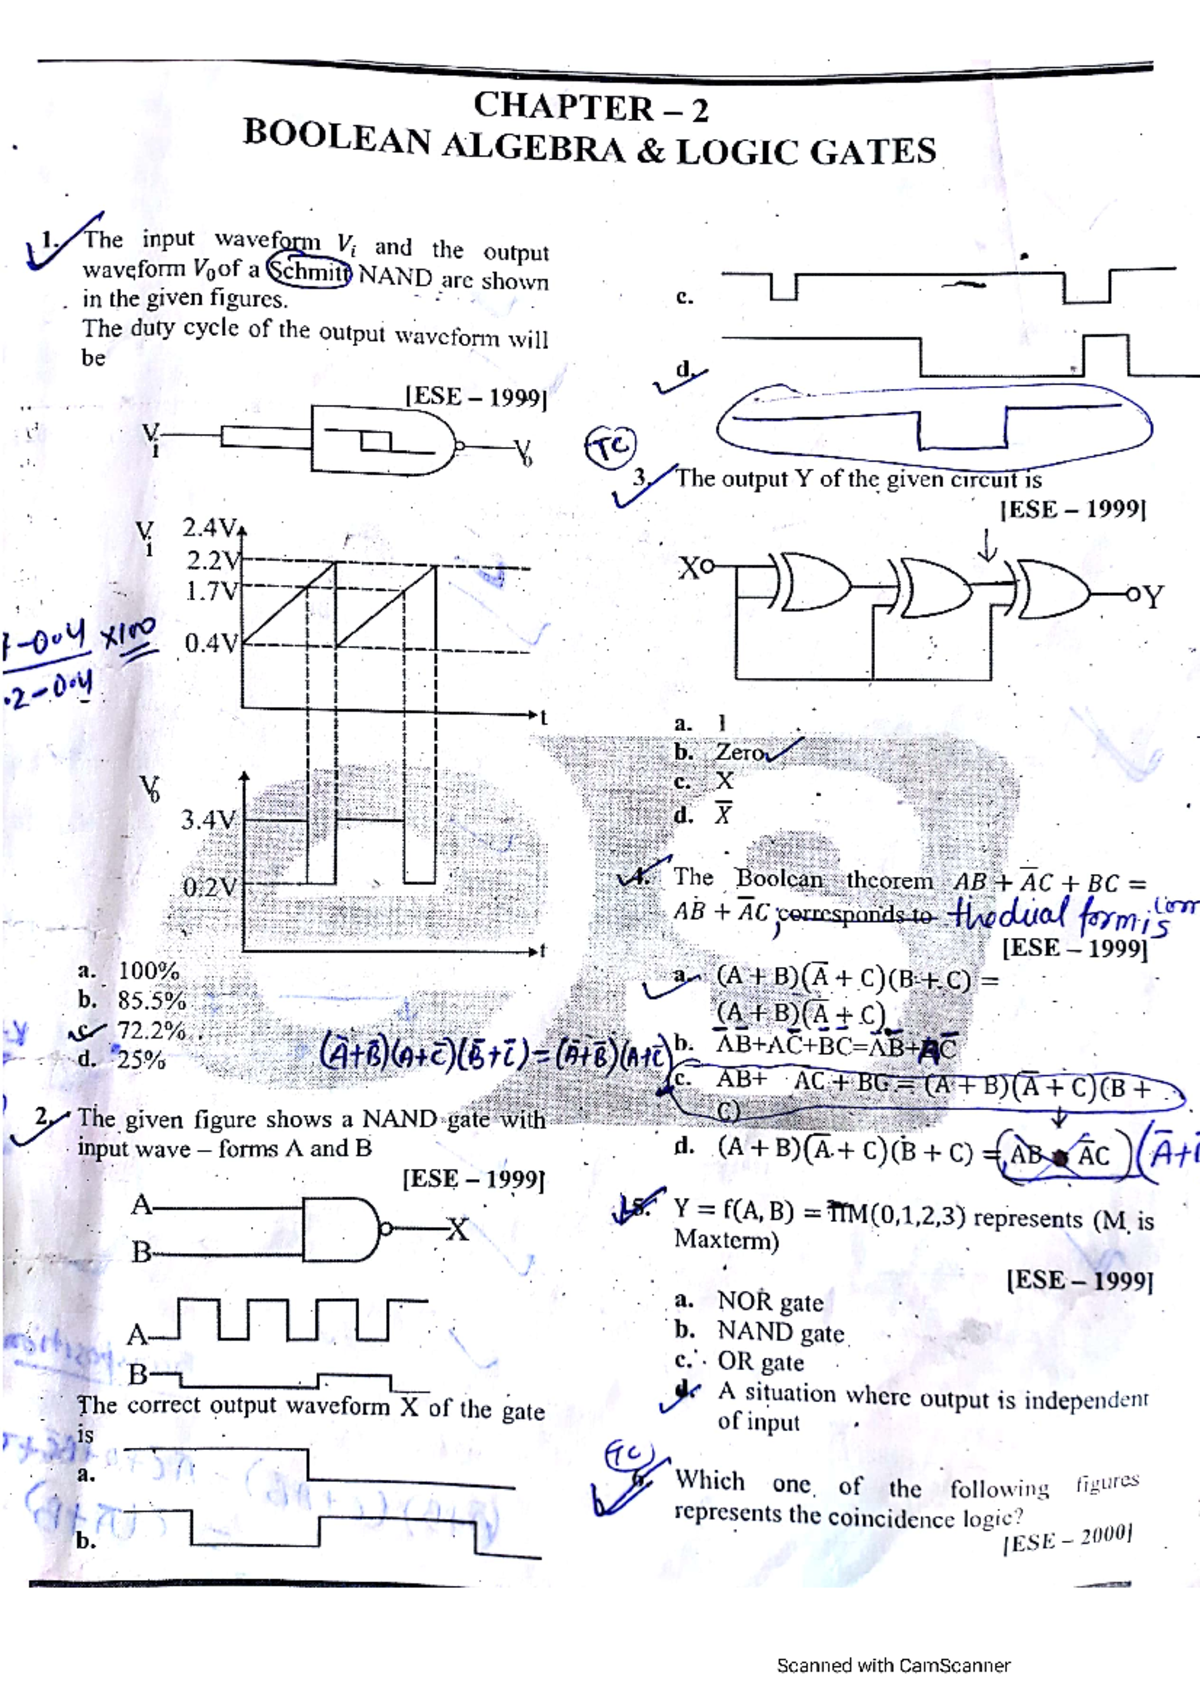 CHAPTER – 2
BOOLEAN ALGEBRA & LOGIC GATES
1. The input waveform Vi and the output
waveform V0 of a Schmitt NAND are shown
in the given figures.
The duty cycle of the output waveform will
be
[ESE – 1999]
Vi
V0
Vi
2.4V
2.2V
1.7V
0.4V
t
-0.4 ×100
.2-0.4
V0
3.4V
0.2V
t
a. 100%
b. 85.5%
c. 72.2%
d. 25%
(A̅+B̅)(A+C̅)(B̅+C̅)=(A̅+B̅)(A+C̅)
2. The given figure shows a NAND gate with
input wave – forms A and B
[ESE – 1999]
A
B
X
A
B
The correct output waveform X of the gate
is
a.
b.
c.
d.
TC
3. The output Y of the given circuit is
[ESE – 1999]
X
Y
a. 1
b. Zero
c. X
d. X̅
4. The Boolean theorem AB + A̅C + BC =
AB + A̅C corresponds to the dual form is
[ESE – 1999]
a. (A + B)(A̅ + C)(B + C) =
(A + B)(A̅ + C)
b. A̅B̅+AC̅+B̅C̅=A̅B̅+AC̅
c. AB+ AC + BC = (A + B)(A̅ + C)(B +
C)
d. (A + B)(A̅ + C)(B + C) = AB A̅C
5. Y = f(A, B) = πM(0,1,2,3) represents (M is
Maxterm)
[ESE – 1999]
a. NOR gate
b. NAND gate
c. OR gate
d. A situation where output is independent
of input
TC
6. Which one of the following figures
represents the coincidence logic?
[ESE – 2000]
Scanned with CamScanner